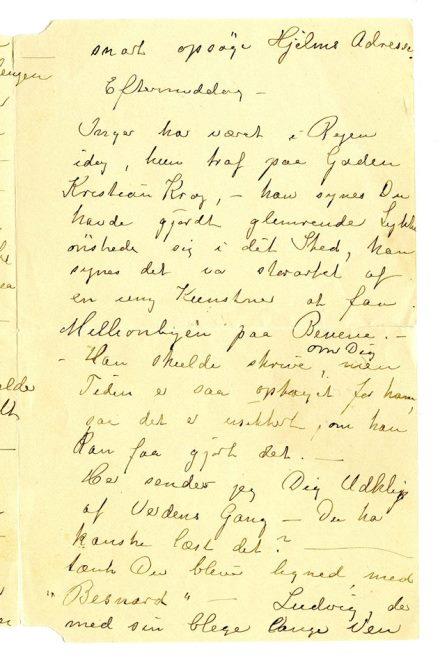 snart opsøge Hjelms Adresse.
Eftermiddag –
Inger har været i Byen
idag, hun traf paa Gaden
Kristian Krog, – han synes Du
havde gjordt glimrende Lykke
ønskede sig i dit Sted, han
synes det var storartet af
en ung Kunstner at faa
Millionbyen paa Benene. –
– Han skulde skrive om Dig, men
Tiden er saa optaget for ham,
saa det er usikkert, om han
kan faa gjort det. –
Her sender jeg Dig Udklip
af Verdens Gang – Du har
kanske læst det? –
tænk Du blev lignet med
"Besnard" – Ludvig, de
med sin blege lange Ven